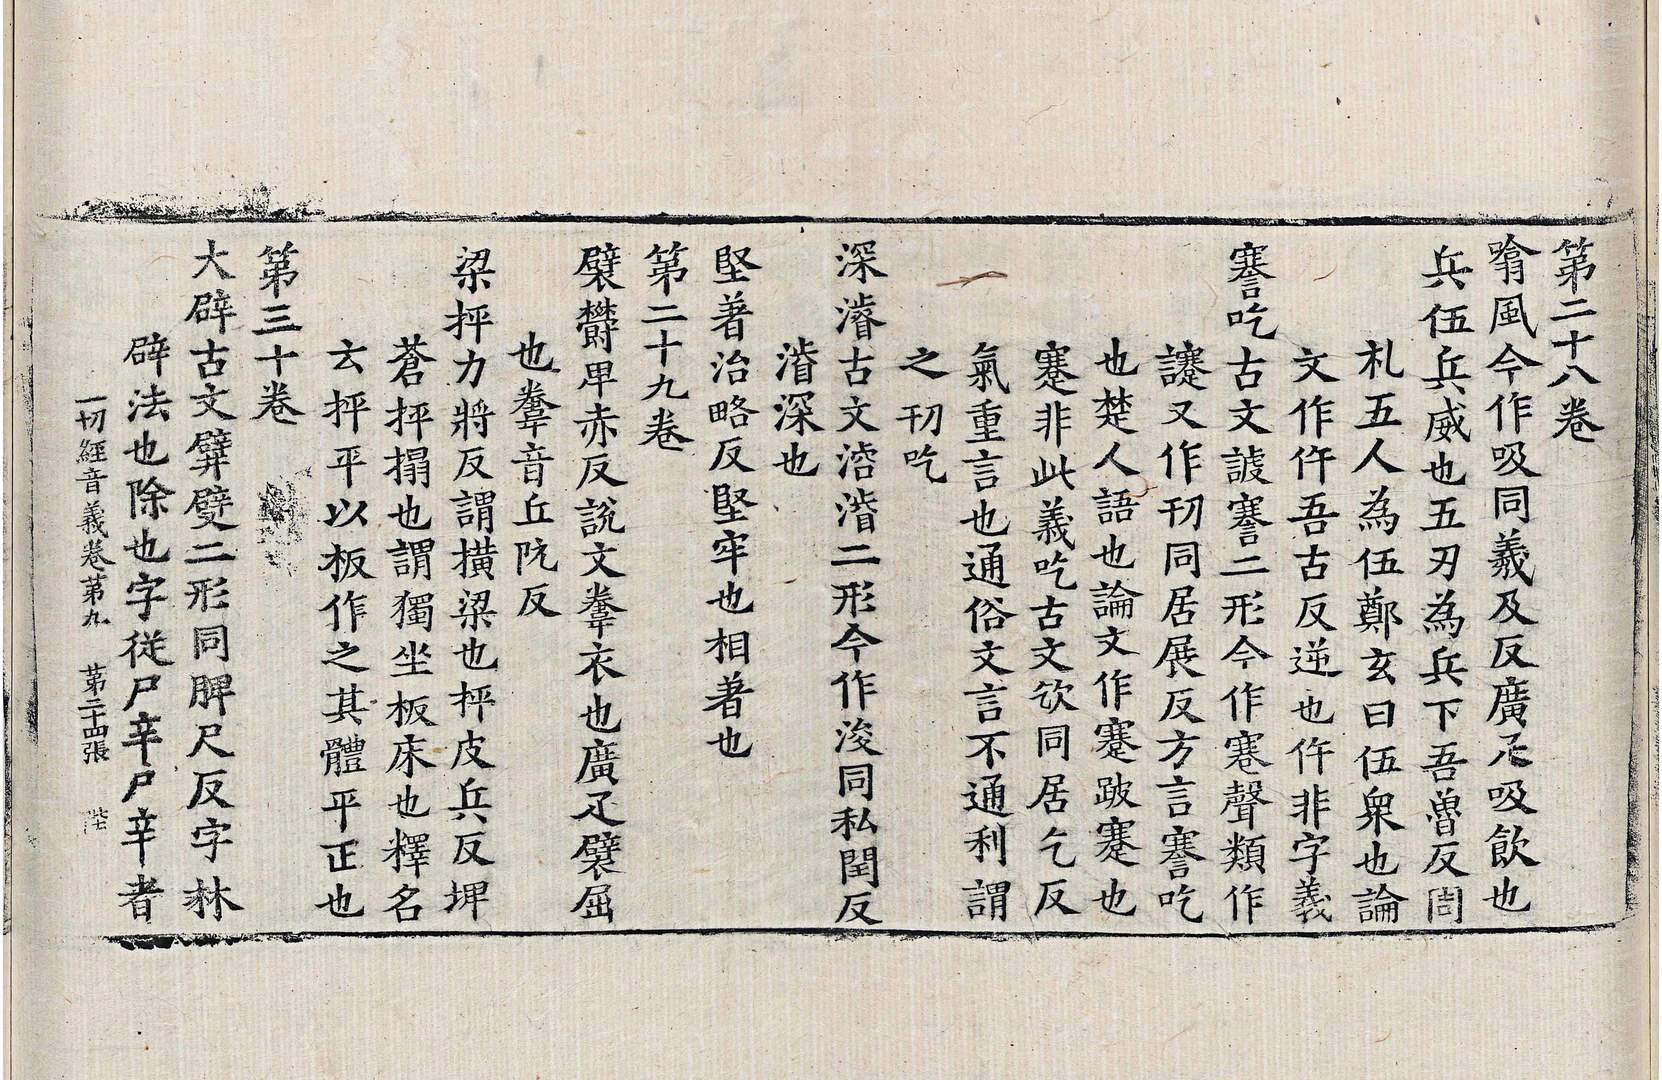 第二十八卷
噏風今作吸同羲及反廣疋吸飲也
兵伍兵威也五刃為兵下吾魯反周
札五人為伍鄭玄曰伍衆也論
文作仵吾古反逆也仵非字義
謇吃古文謇二形今作蹇聲類作
又作刃同居展反方言謇吃
也楚人語也論文作蹇跛蹇也
蹇非此義吃古文㰟同居乞反
氣重言也通俗文言不通利謂
之刃吃
深濬古文濬二形今作浚同私閏反
濬深也
堅著治略反堅牢也相著也
第二十九卷
襞欝卑赤反說文韏衣也廣疋襞屈
也韏音丘阮反
梁抨力將反謂橫梁也抨皮兵反埤
蒼抨榻也謂獨坐板床也釋名
云抨平以板作之其體平正也
第三十卷
大辟古文二形同脾尺反字林
辟法也除也字從尸辛尸辛者
一切經音義卷第九 第二十四張